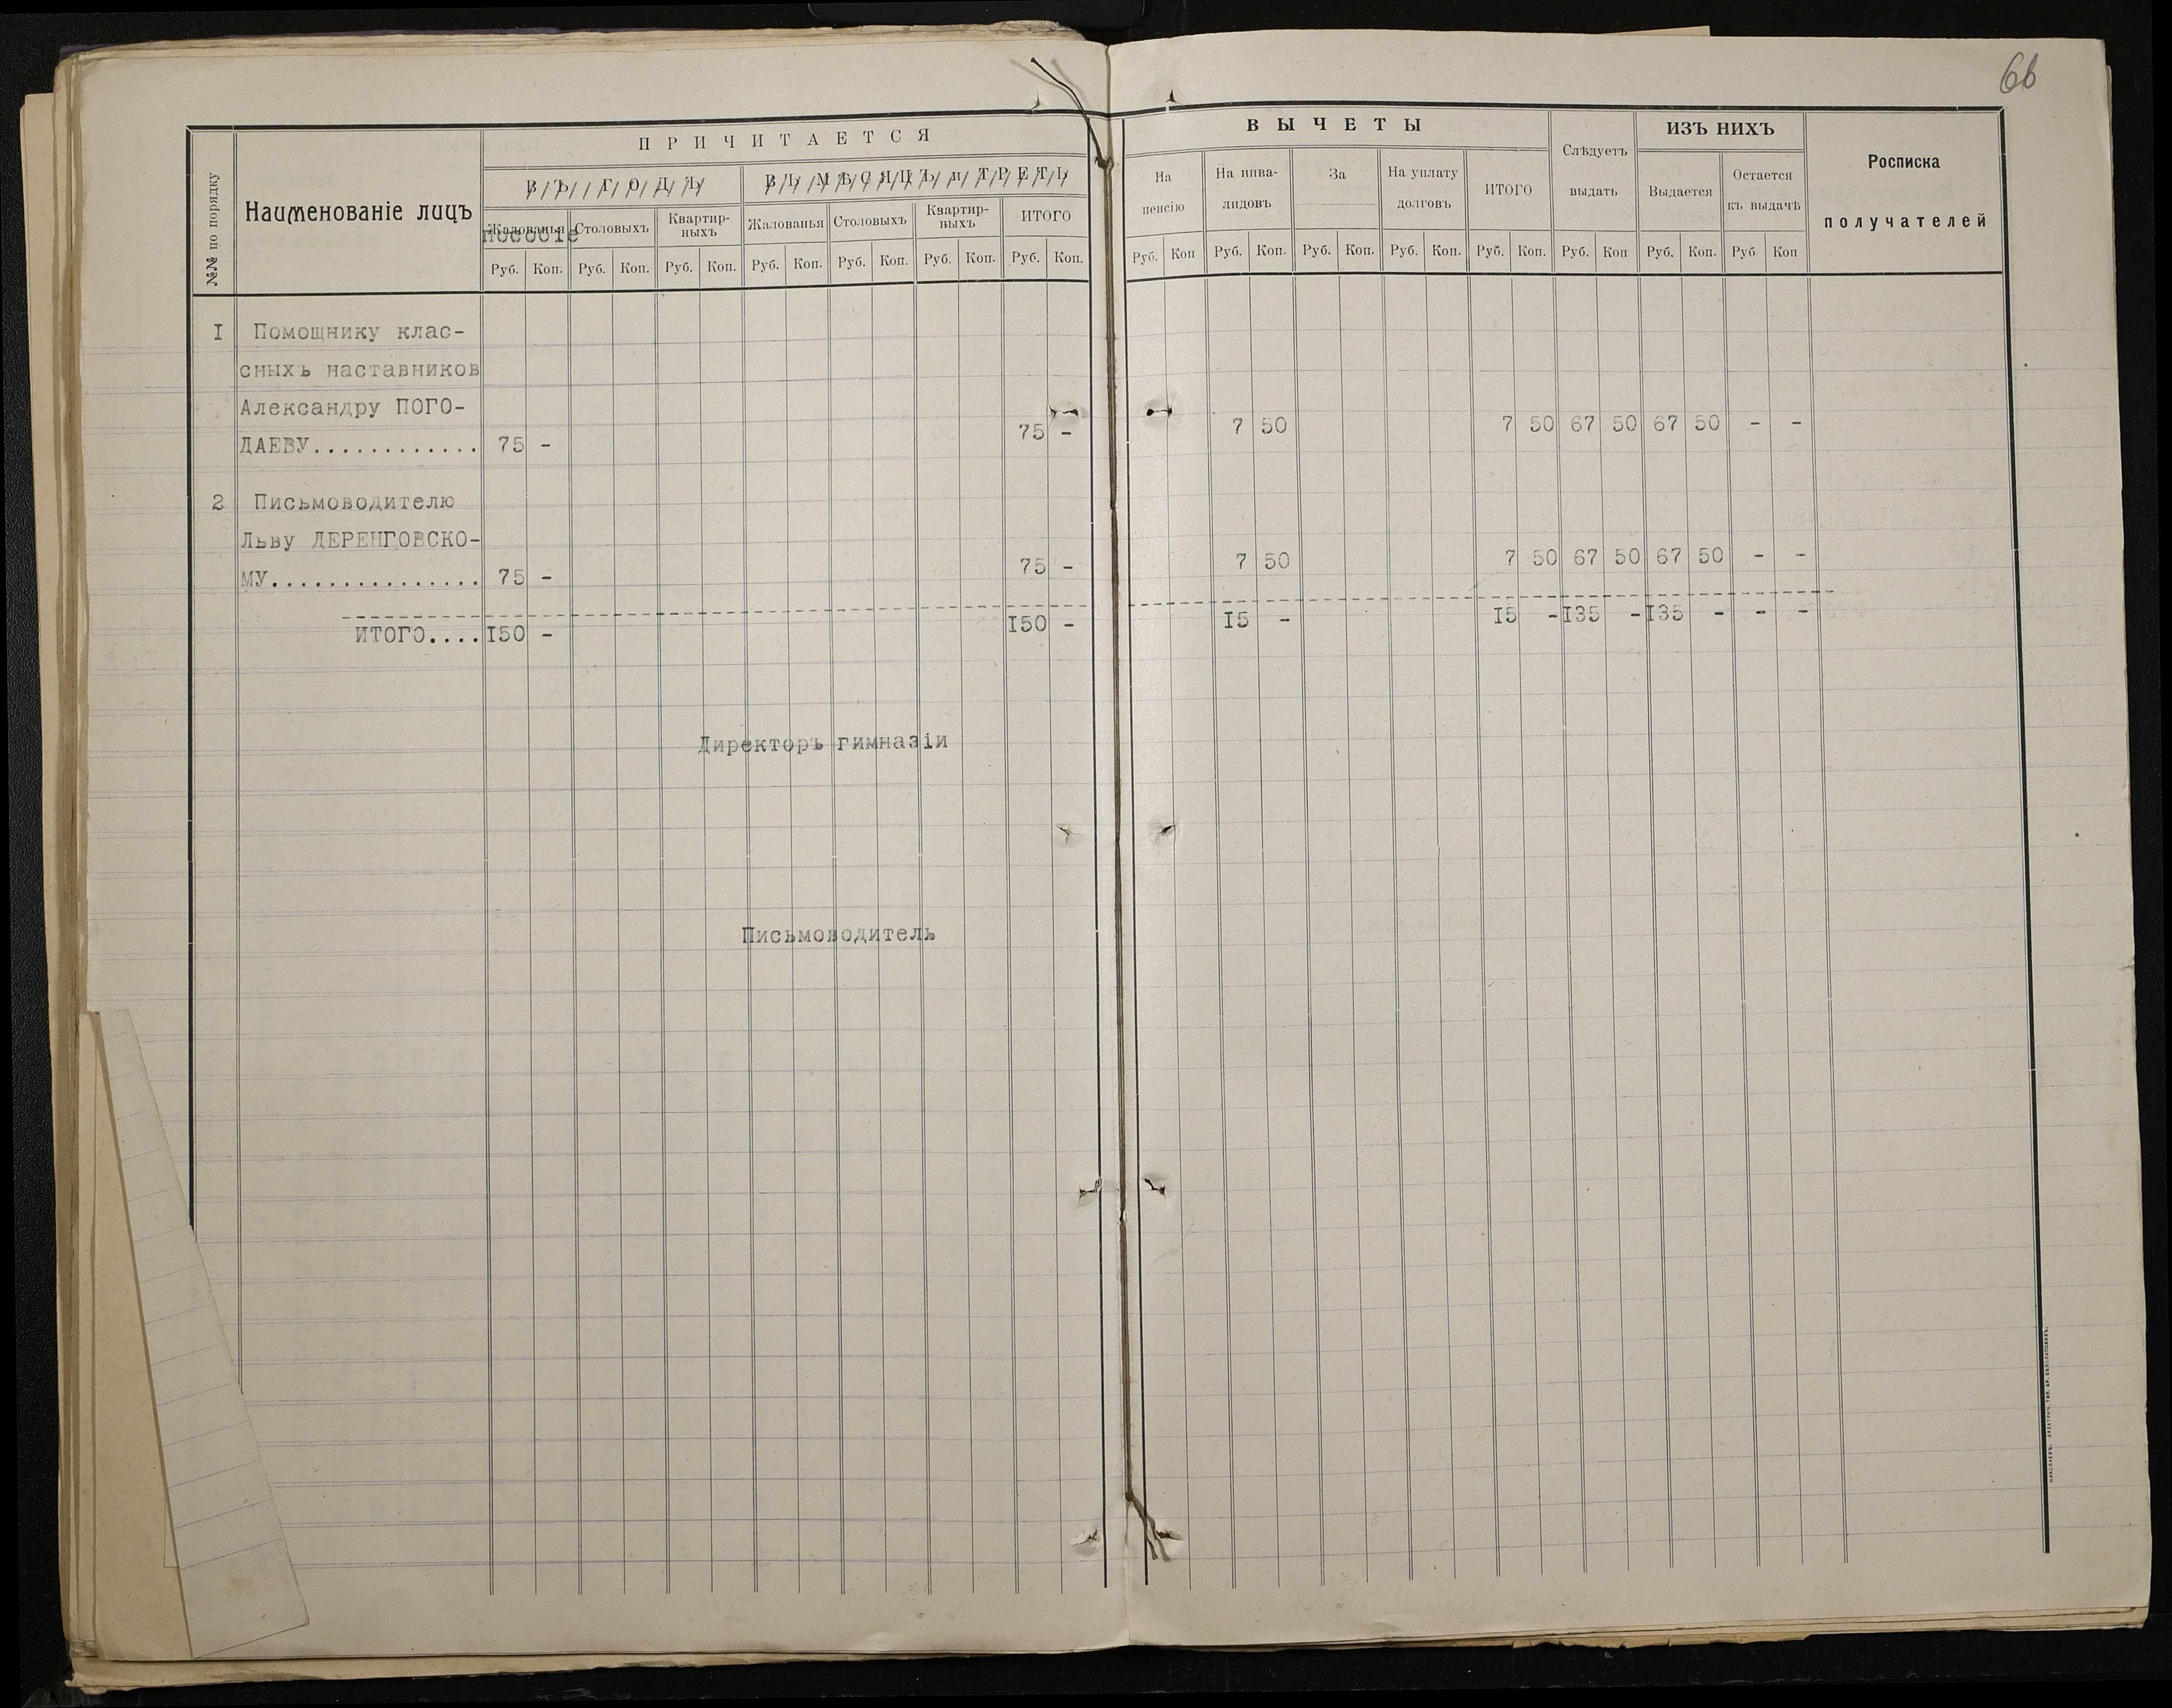 66
ПРИЧИТАЕТСЯ
ВЪ ГОДЪ
ВЪ МѢСЯЦЪ и ТРЕТЬ
№№ по порядку
Наименованіе лицъ
Жалованья Столовыхъ Квартир-ныхъ Жалованья Столовыхъ Квартир-ныхъ ИТОГО
пособіе
Руб. Коп. Руб. Коп. Руб. Коп. Руб. Коп. Руб. Коп. Руб. Коп. Руб. Коп.
ВЫЧЕТЫ
ИЗЪ НИХЪ
На пенсію
На инва-лидовъ
За
На уплату долговъ
ИТОГО
Слѣдуетъ выдать
Выдается
Остается къ выдачѣ
Росписка
получателей
Руб. Коп Руб. Коп. Руб. Коп. Руб. Коп. Руб. Коп. Руб. Коп Руб. Коп. Руб Коп
I Помощнику клас-
сныхъ наставников
Александру ПОГО-
ДАЕВУ............ 75 - 75 - 7 50 7 50 67 50 67 50 - -
2 Письмоводителю
Льву ДЕРЕНГОВСКО-
МУ............... 75 - 75 - 7 50 7 50 67 50 67 50 - -
ИТОГО.... I50 - I50 - I5 - I5 - I35 - I35 - - -
Директоръ гимназіи
Письмоводитель